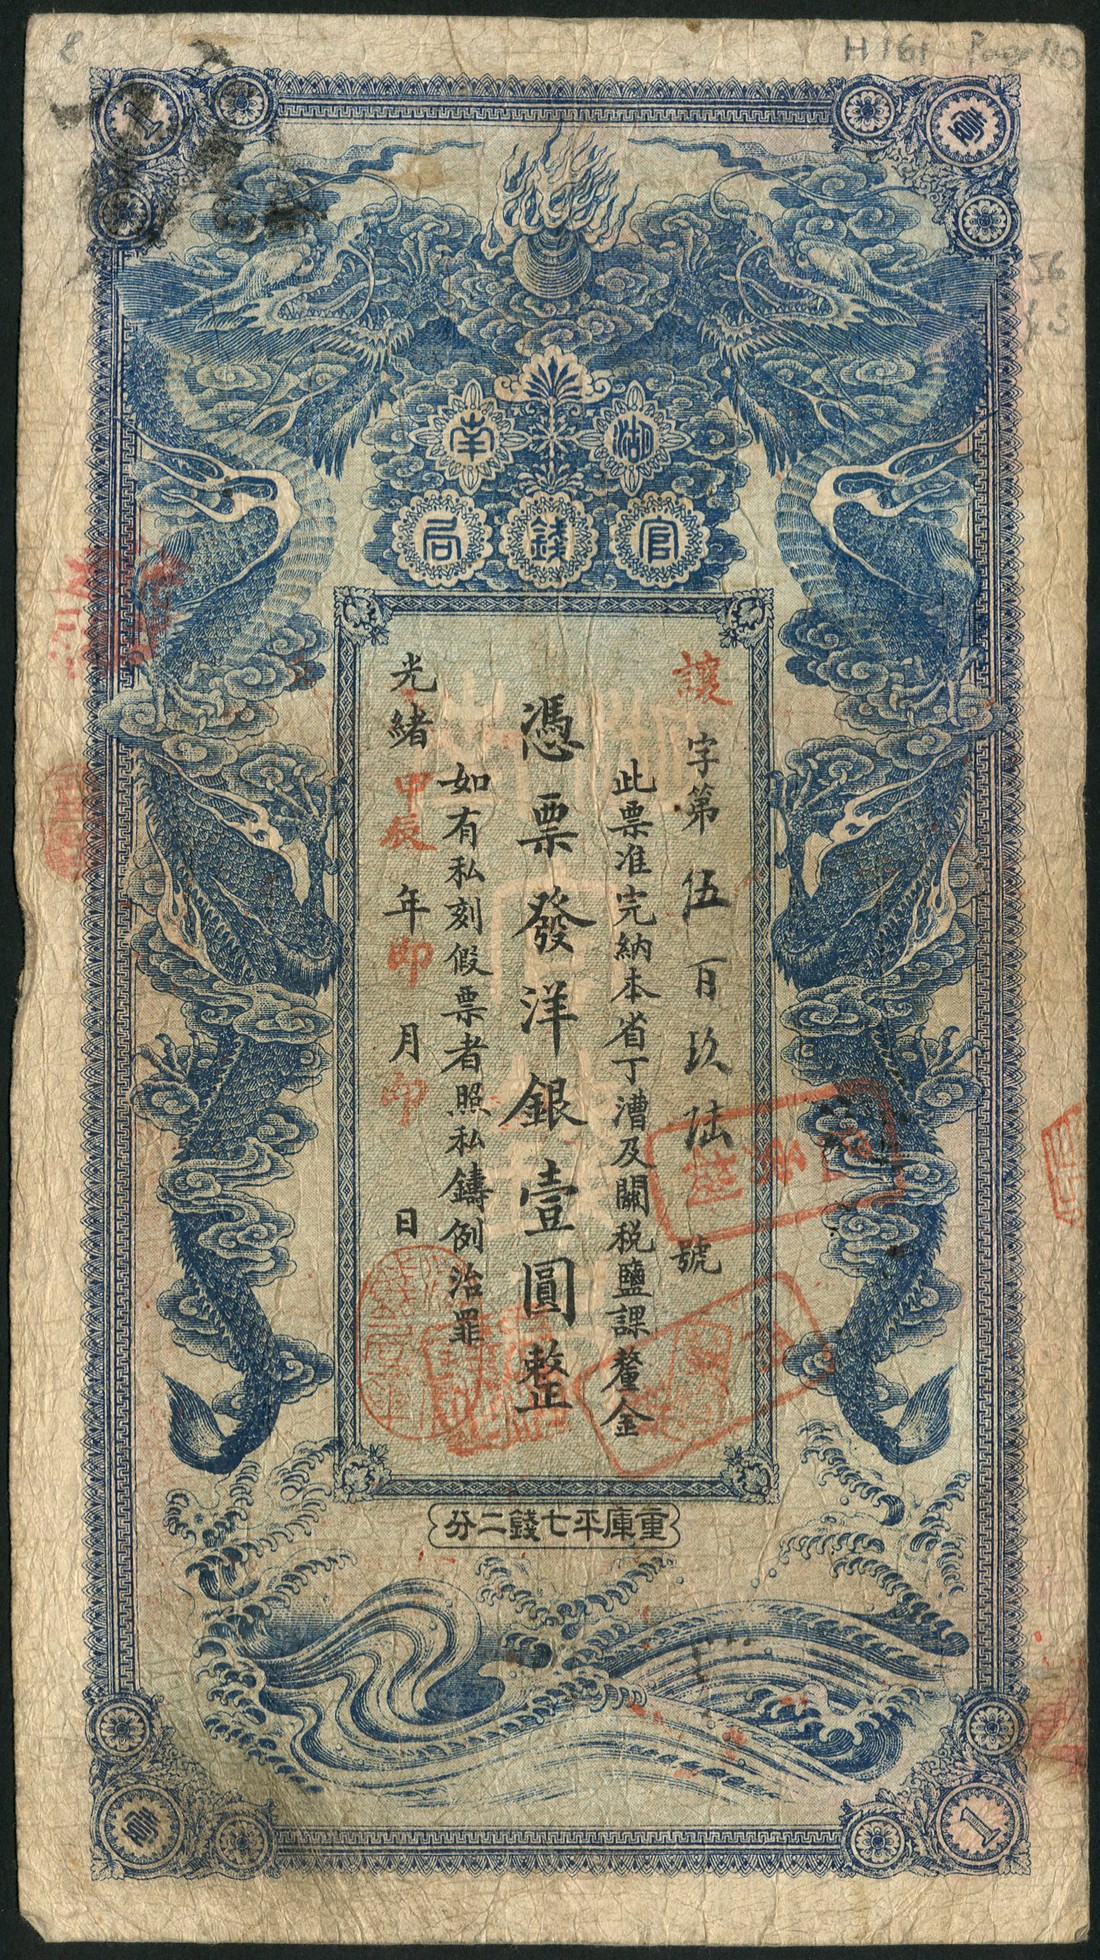 8
H161 Page 110
56
1
壹
湖南
官錢局
讓字第伍百玖陸號
此票准完納本省丁漕及關稅鹽課釐金
憑票發洋銀壹圓整
如有私刻假票者照私鑄例治罪
光緒甲辰年卯月印日
重庫平七錢二分
壹
1